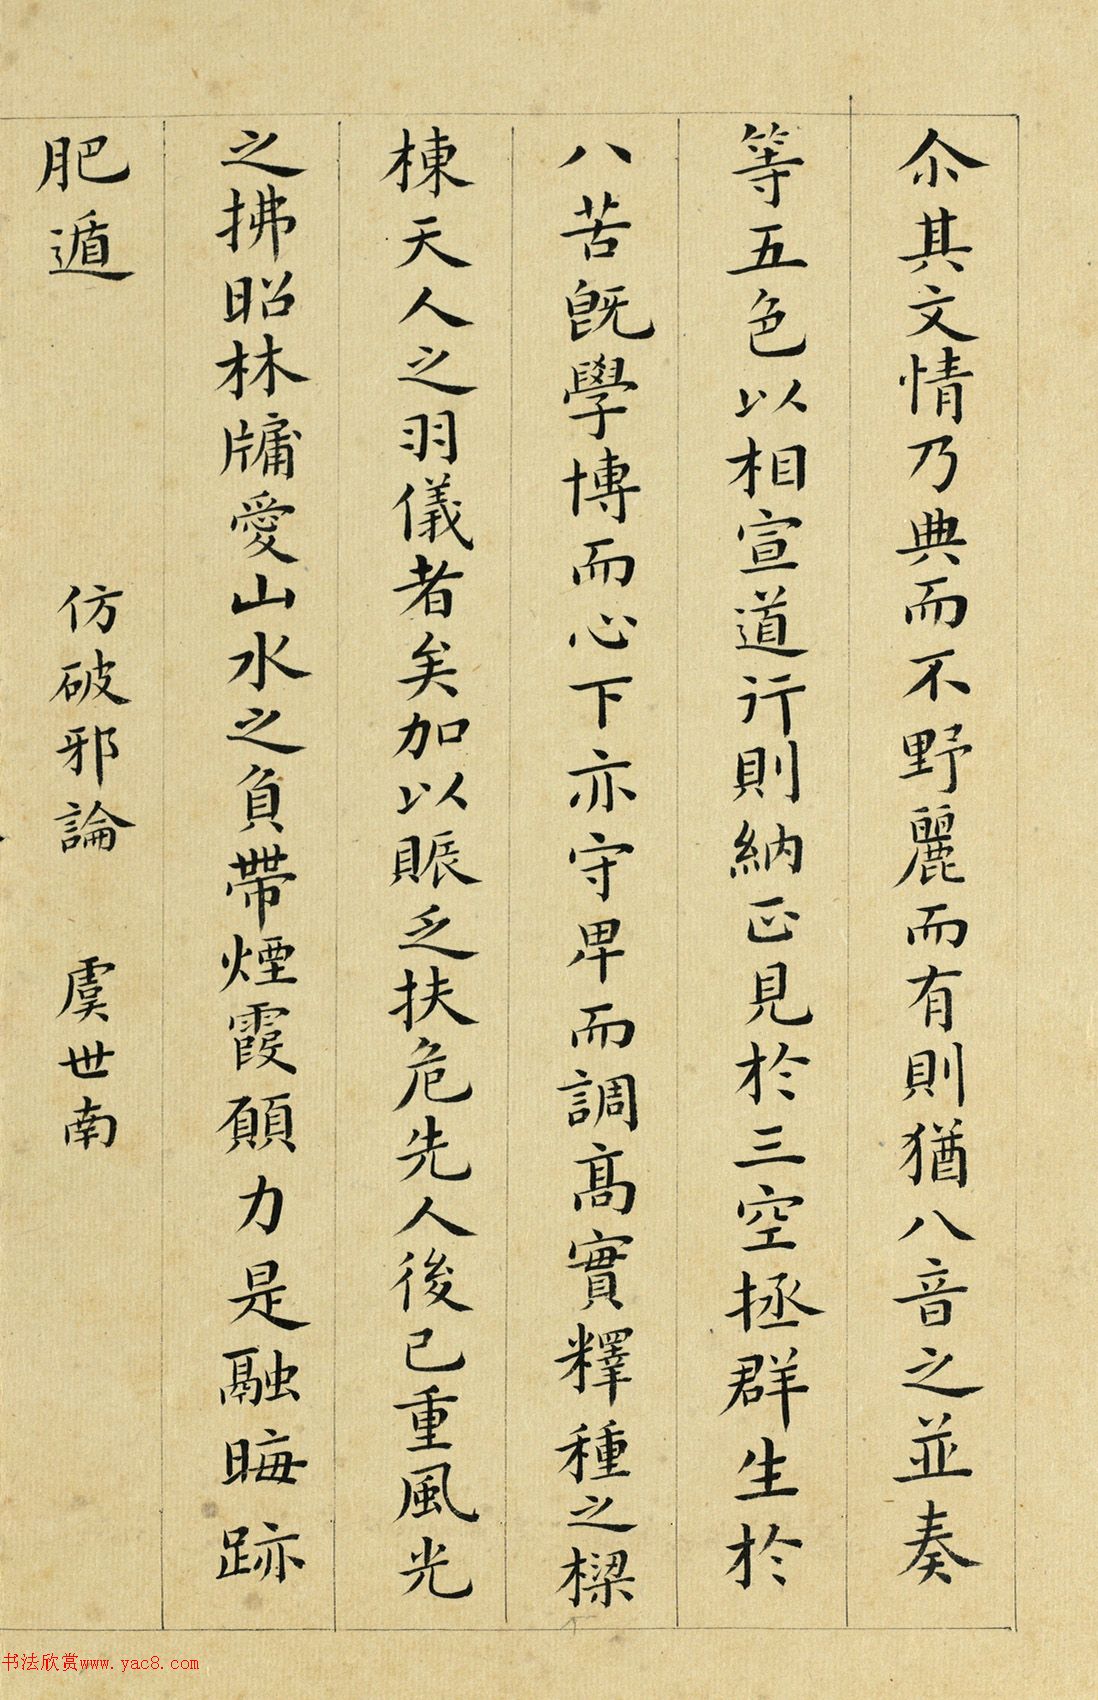 尒其文情乃典而不野麗而有則猶八音之並奏
等五色以相宣道行則納正見於三空拯群生於
八苦既學博而心下亦守卑而調髙實釋種之樑
棟天人之羽儀者矣加以賑乏扶危先人後已重風光
之拂昭林牗愛山水之負帶煙霞願力是融晦跡
肥遁
仿破邪論 虞世南
书法欣赏www.yac8.com